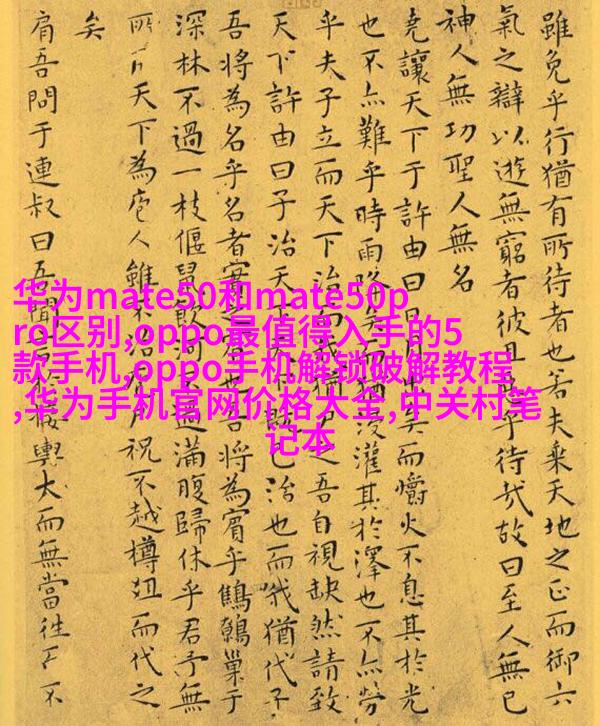 雖免乎行猶有所待者也若夫乘天地之正而御六
氣之辯以遊無窮者彼且乎待哉故曰至人無己
神人無功聖人無名
堯讓天下于許由曰日月出矣而爝火不息其於光
也不亦難乎時雨降矣而猶浸灌其於澤也不亦勞
乎夫子立而天下治而我猶尸之吾自視缺然請致
天下許由曰子治天下既已治也而我猶代子
吾將為名乎名者實賓也吾將為賓乎鷦鷯巢于
深林不過一枝偃鼠飲河不過滿腹歸休乎君予無
所用天下為庖人雖不治庖尸祝不越樽俎而代之
矣
肩吾問于連叔曰吾聞言於接輿大而無當往而不
华为mate50和mate50p
ro区别,oppo最值得入手的5
款手机,oppo手机解锁破解教程
,华为手机官网价格大全,中关村笔
记本